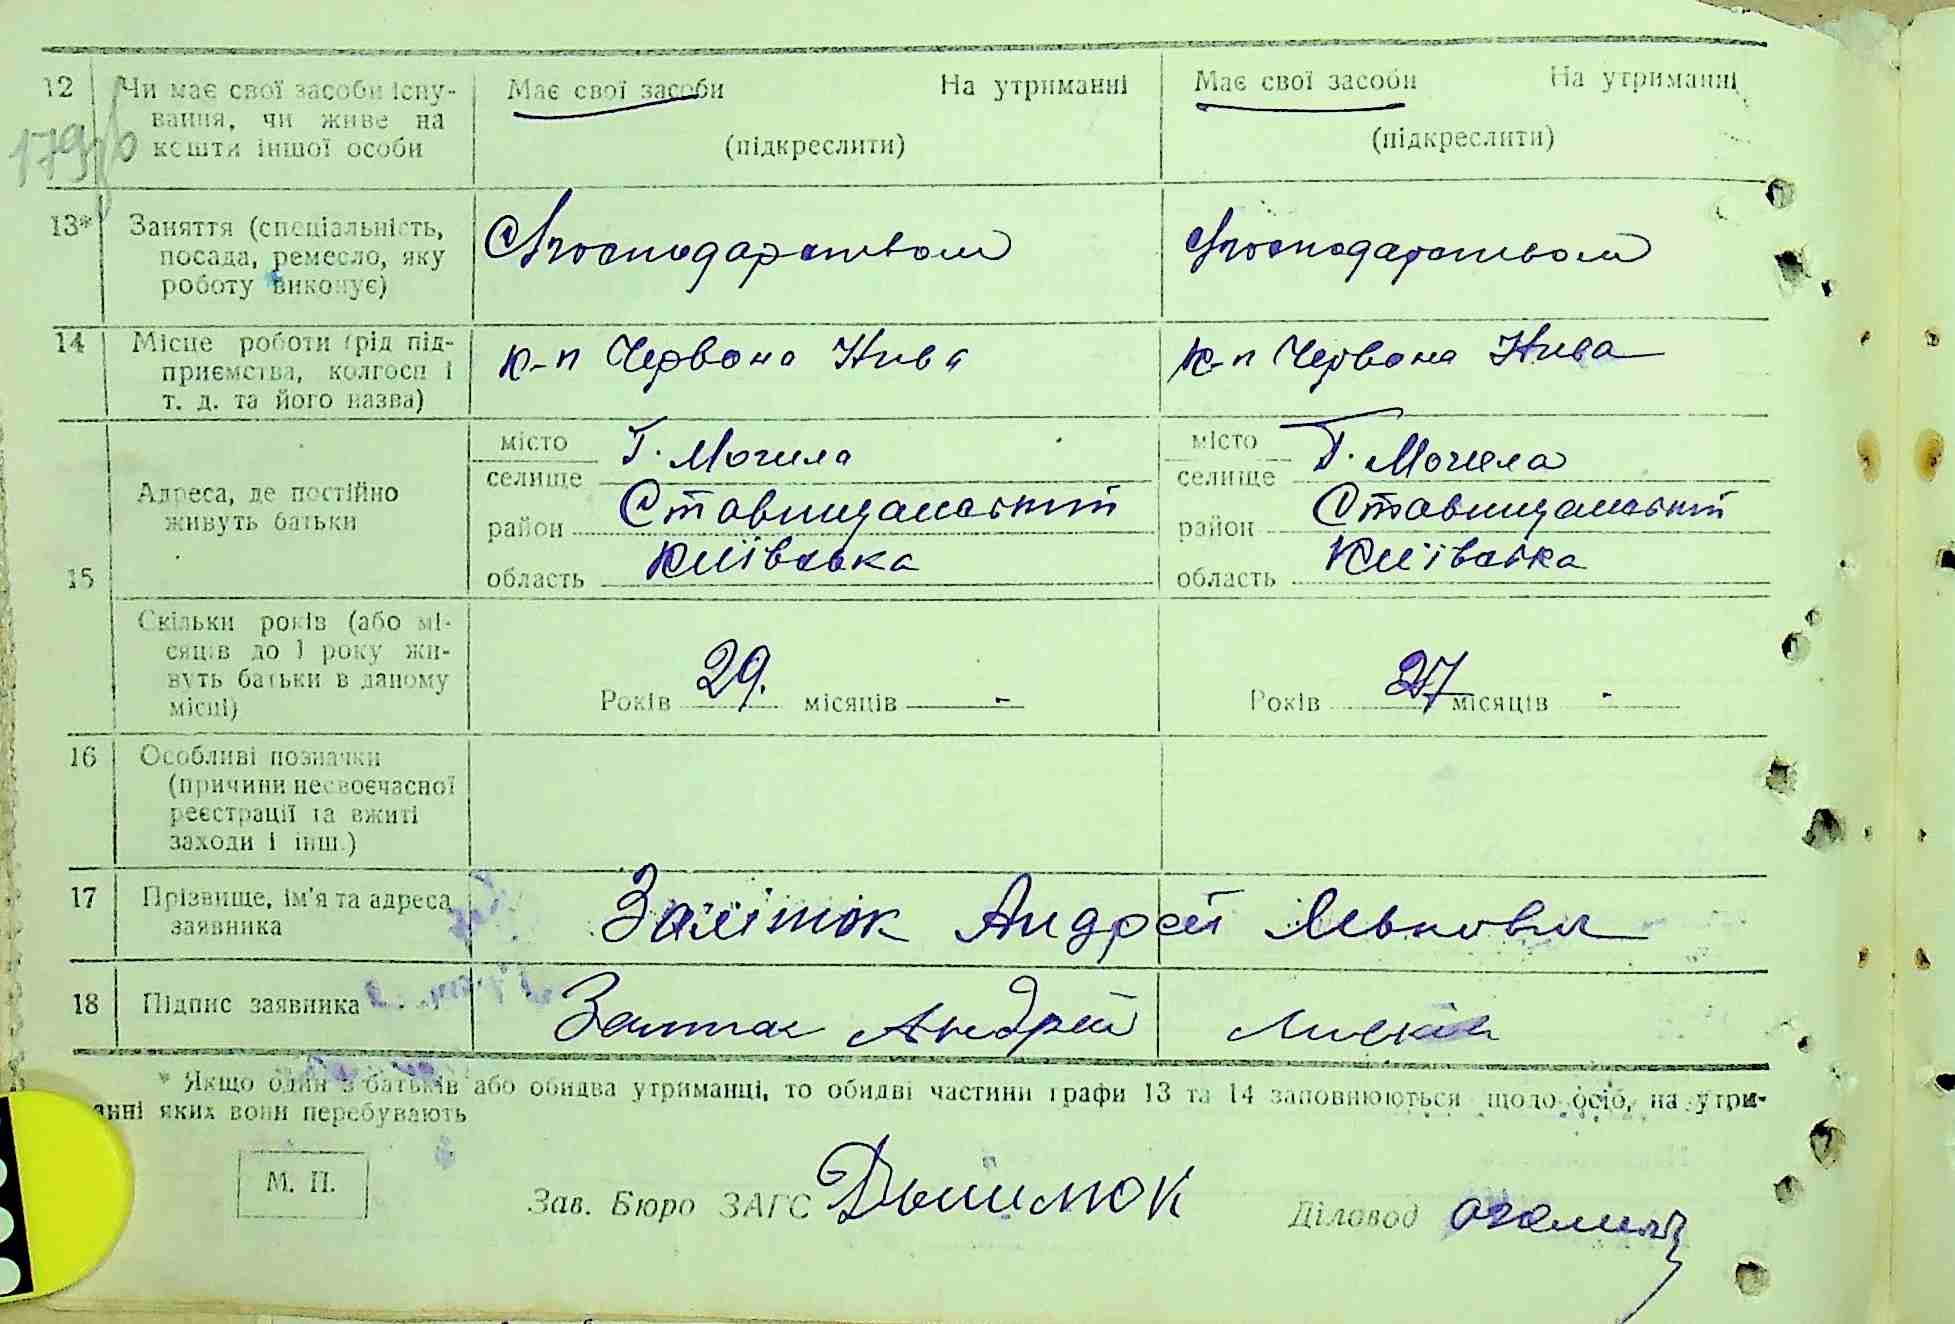 12 Чи має свої засоби існу- Має свої засоби На утриманні Має свої засоби На утриманні
вання, чи живе на
кошти іншої особи (підкреслити) (підкреслити)
179
13* Заняття (спеціальність,
посада, ремесло, яку господарством господарством
роботу виконує)
14 Місце роботи (рід під- к-п Червона Нива к-п Червона Нива
приємства, колгосп і
т. д. та його назва)
15 Адреса, де постійно
живуть батьки
місто Г. Могила місто Г. Могила
селище селище
район Ставищанський район Ставищанський
область Київська область Київська
Скільки років (або мі-
сяців до 1 року жи-
вуть батьки в даному
місці)
Років 29. місяців - Років 27 місяців -
16 Особливі позначки
(причини несвоєчасної
реєстрації та вжиті
заходи і інш.)
17 Прізвище, ім'я та адреса Андрей
заявника
18 Підпис заявника Андрій
* Якщо один з батьків або обидва утриманці, то обидві частини графи 13 та 14 заповнюються щодо осіб, на утри-
анні яких вони перебувають
М. П.
Зав. Бюро ЗАГС Діловод